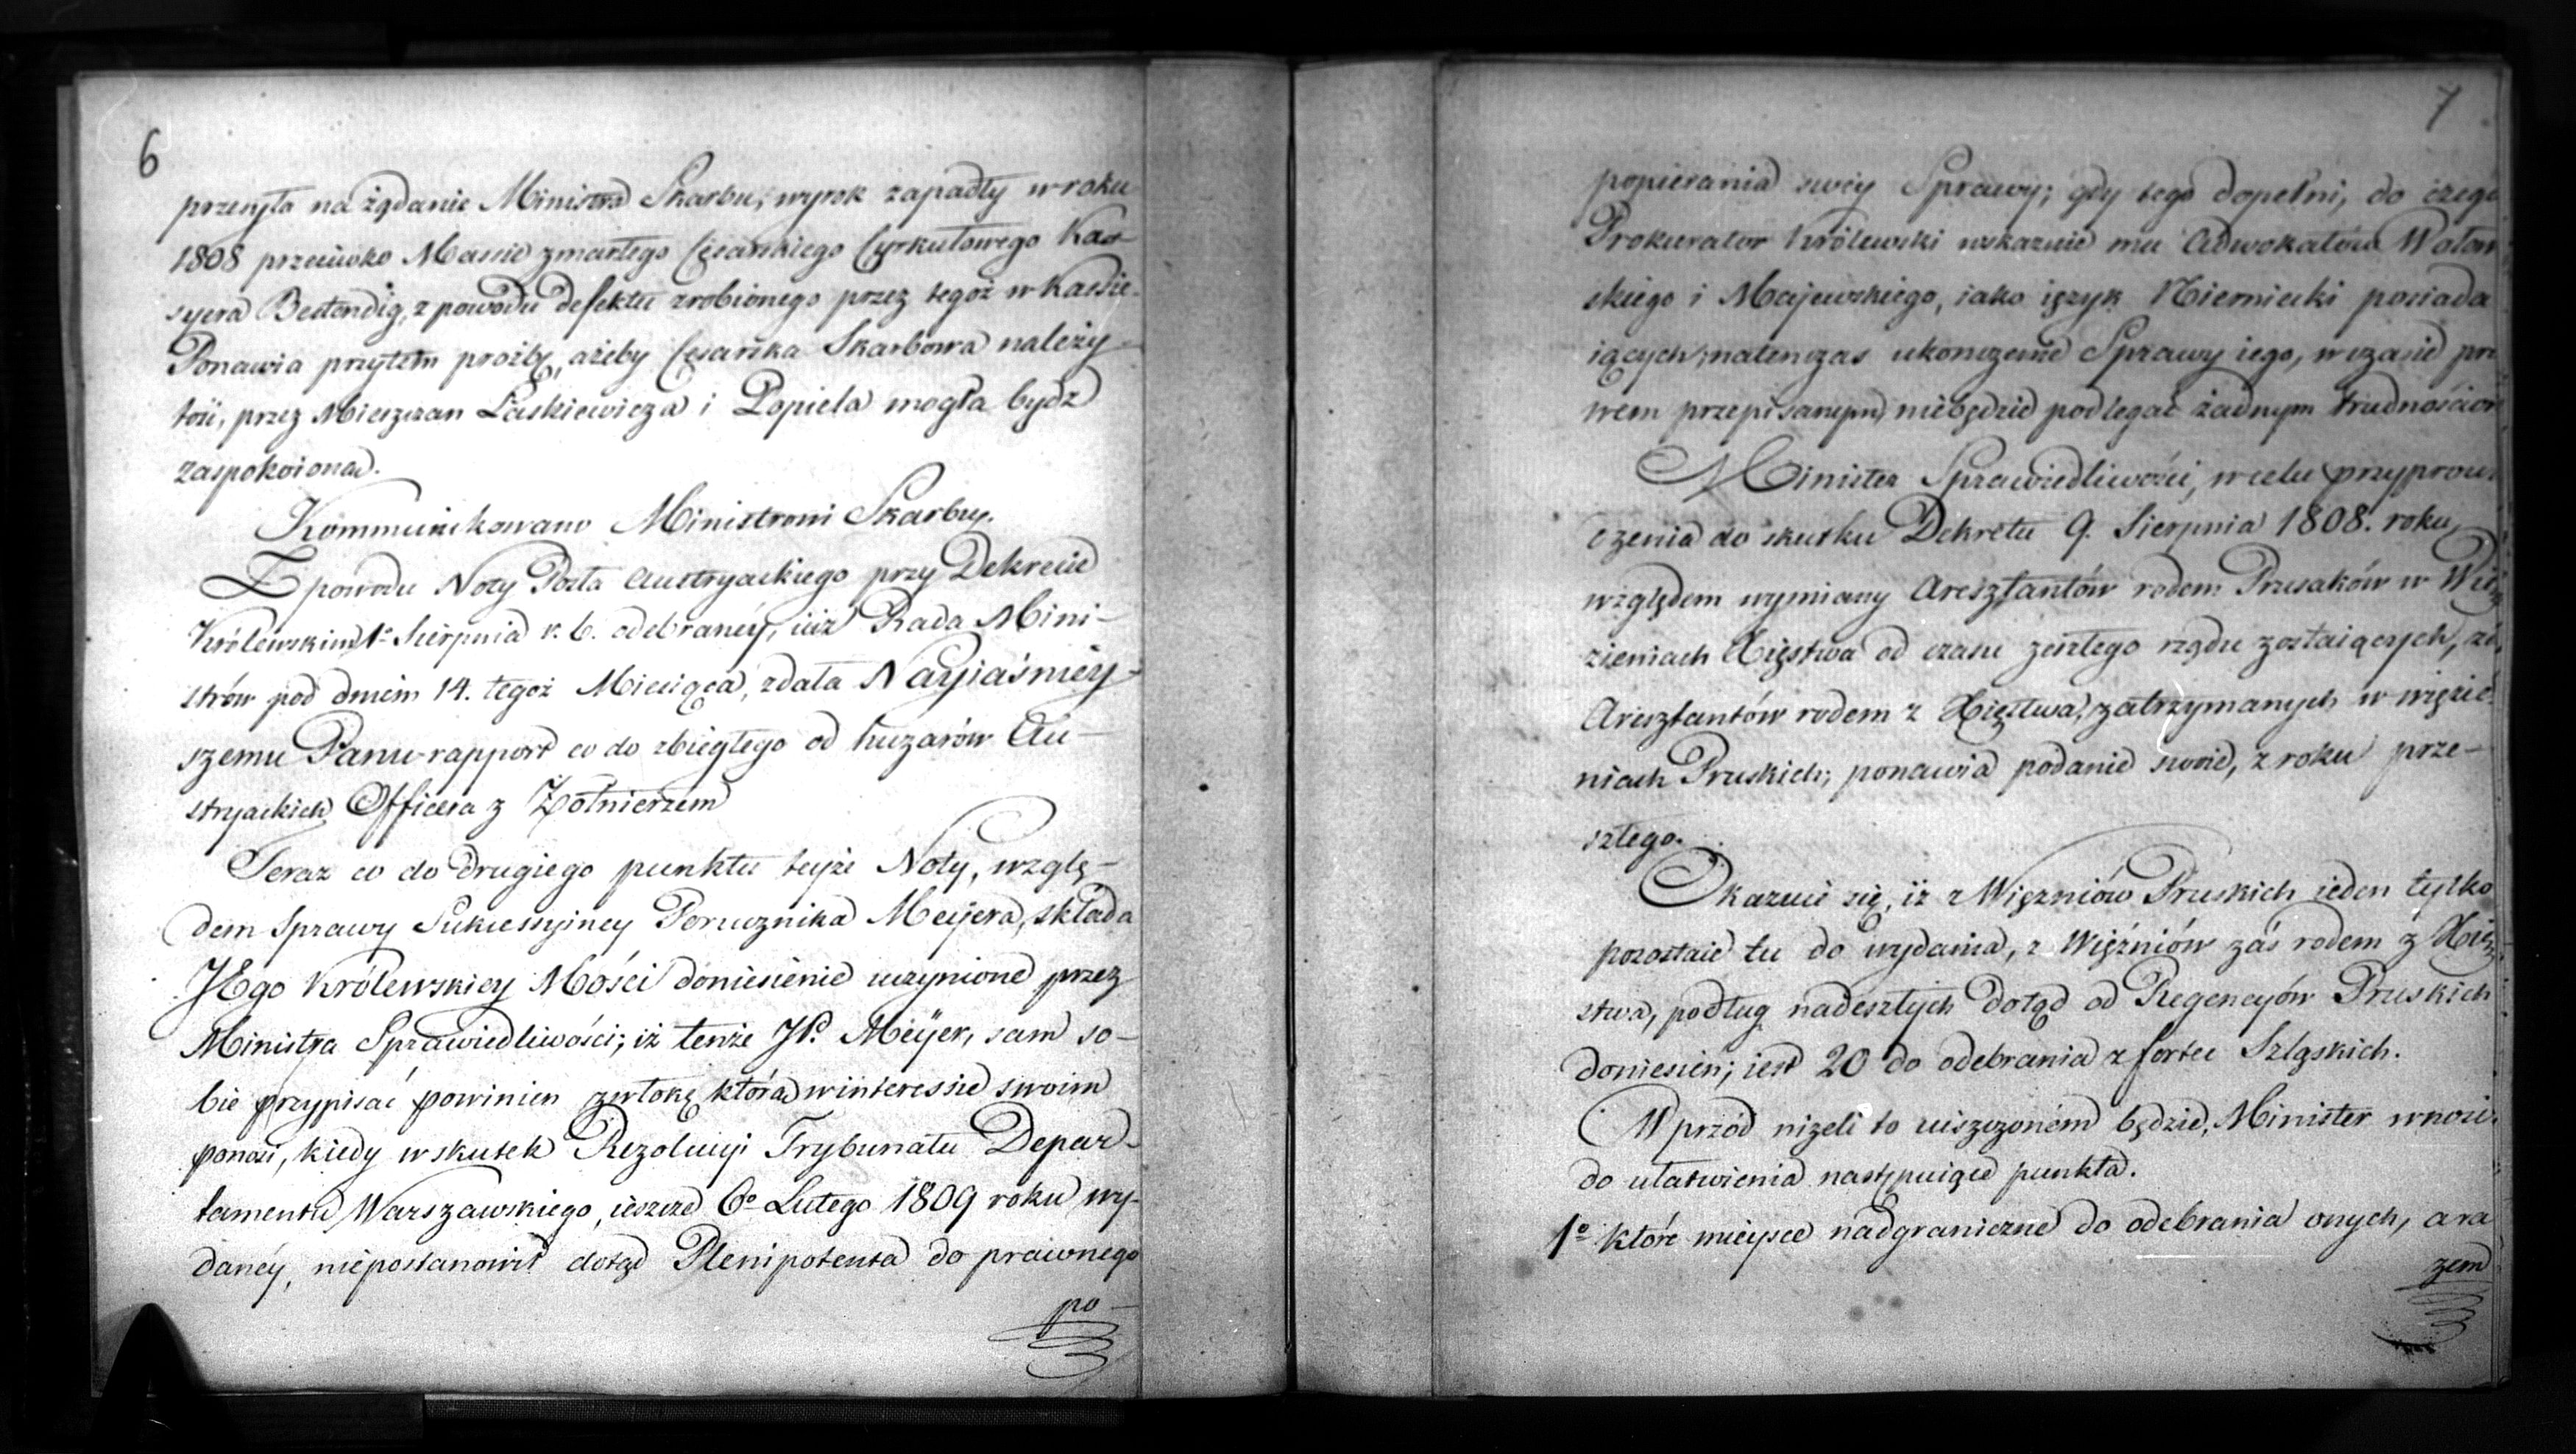 6
przesyła na żądanie Ministra Skarbu, wyrok zapadły w roku
1808 przeciwko Massie zmarłego Cesarskiego Cyrkułowego Kas-
syera Bestendig, z powodu defektu zrobionego przez tegoż w Kassie.
Ponawia przytem prozbę, ażeby Cesarska Skarbowa należy-
tość, przez Mieszczan Laskiewicza i Popiela mogła bydz
zaspokoiona.
Kommunikowano Ministrowi Skarbu.
Z powodu Noty Posła Austryackiego przy Dekrecie
Królewskim 1º Sierpnia r. b. odebranéy, iuż Rada Mini-
strów pod dniem 14. tegoż Miesiąca, zdała Nayiaśniéy-
szemu Panu rapport co do zbiegłego od huzarów Au-
stryackich Officera z Żołnierzem
Teraz co do drugiego punktu teyże Noty, wzglę-
dem Sprawy Sukcessyiney Porucznika Meyera, składa
JEgo Królewskiey Mości doniesienie uczynione przez
Ministra Sprawiedliwości; iż tenże JP. Meÿer, sam so-
bie przypisać powinien zwłokę którą w interessie swoim
ponosi, kiedy w skutek Rezolucyi Trybunału Depar-
tamentu Warszawskiego, ieszcze 6º Lutego 1809 roku wy-
danéy, niepostanowił dotąd Plenipotenta do prawnego
po-
7
popierania swéy Sprawy; gdy tego dopełni, do czego
Prokurator Królewski wskazuie mu Adwokatów Wołow
skiego i Majewskiego, iako ięzyk Niemiecki posiada
iących; natenczas ukończenie Sprawy iego, w czasie pra
wem przepisanym, niebędzie podlegać żadnym trudnościom
Minister Sprawiedliwości, w celu przyprowa
dzenia do skutku Dekretu 9. Sierpnia 1808. roku,
względem wymiany Aresztantów rodem Prusaków w Wię
zieniach Xięstwa od czasu zeszłego rządu zostaiących, za
Aresztantów rodem z Xięstwa, zatrzymanych w więzie
niach Pruskich; ponawia podanie swoie, z roku prze-
szłego.
Okazuie się, iż z Więzniów Pruskich ieden tylko
pozostaie tu do wydania, z Więźniów zaś rodem z Xię
stwa, podług nadeszłych dotąd od Regencyów Pruskich
doniesień; iest 20 do odebrania z fortec Szląskich.
Wprzód niżeli to uiszczoném będzie, Minister wnosi
do ułatwienia następuiące punkta.
1º które mieysce nadgraniczne do odebrania onych, a ra
zem